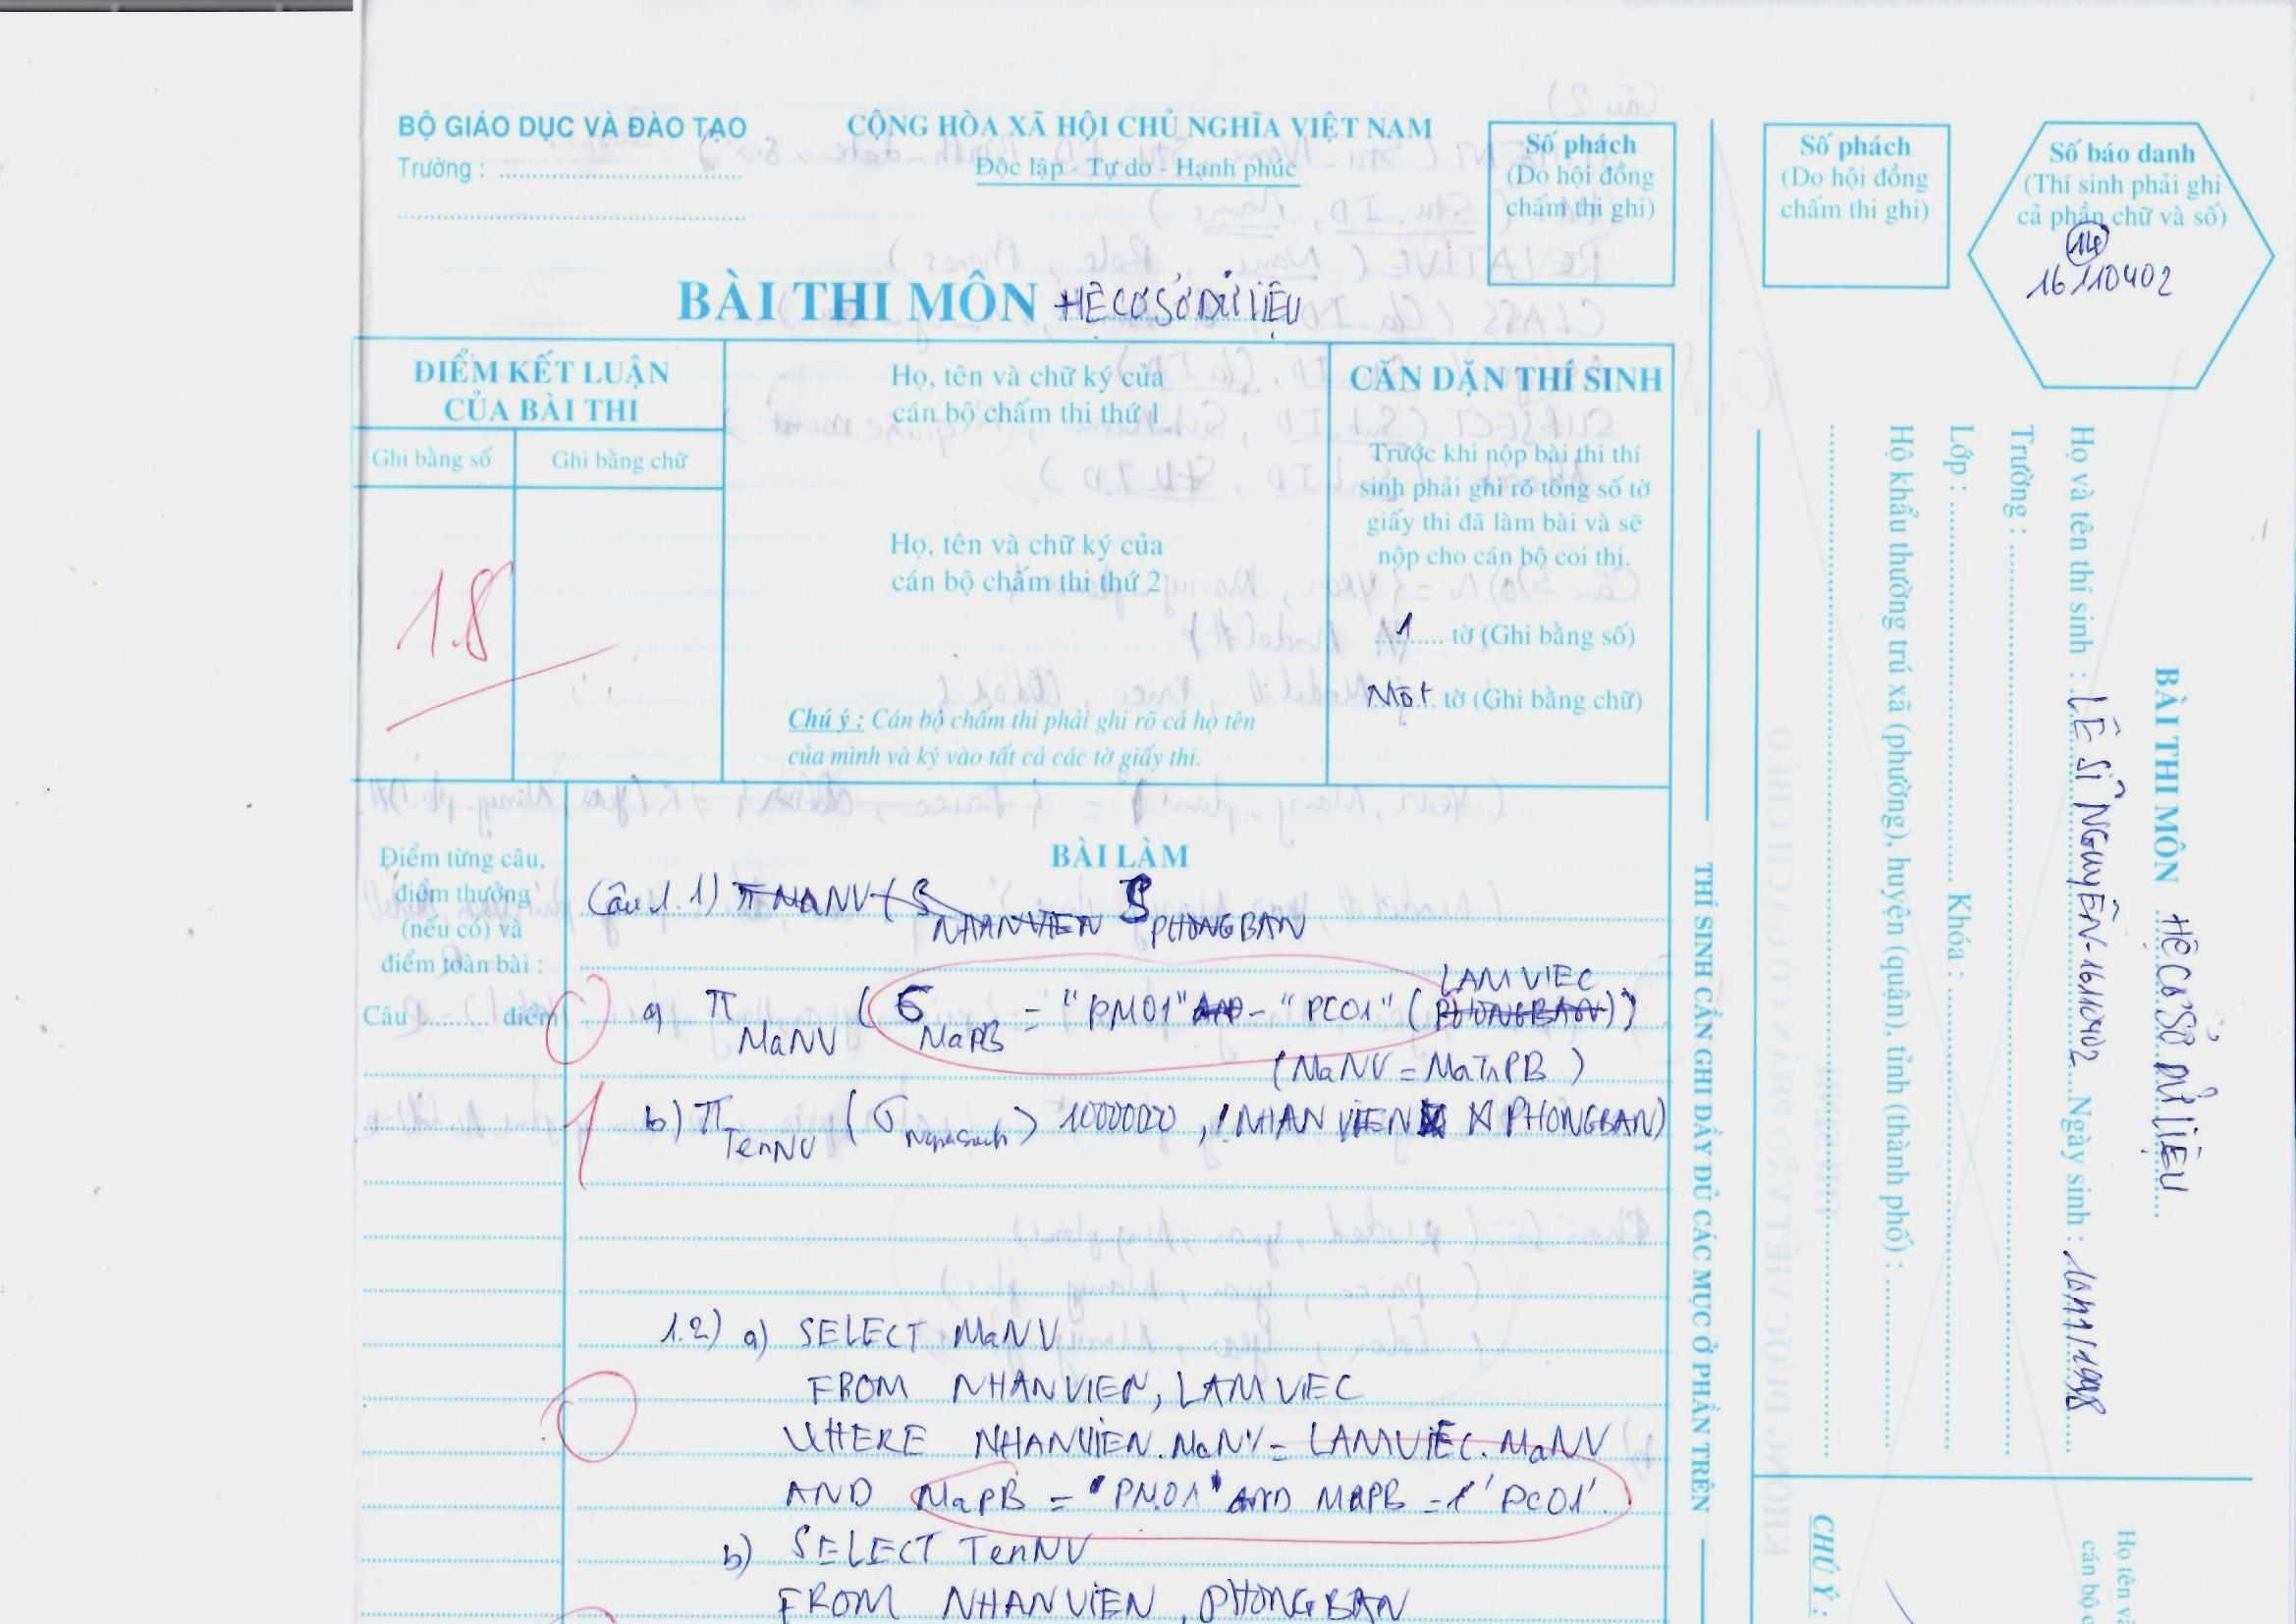 BỘ GIÁO DỤC VÀ ĐÀO TẠO
Trường : ....................
CỘNG HÒA XÃ HỘI CHỦ NGHĨA VIỆT NAM
Độc lập - Tự do - Hạnh phúc
Số phách
(Do hội đồng
chấm thi ghi)
Số phách
(Do hội đồng
chấm thi ghi)
Số báo danh
(Thí sinh phải ghi
cả phần chữ và số)
14
16110402
BÀI THI MÔN HỆ CƠ SỞ DỮ LIỆU
ĐIỂM KẾT LUẬN
CỦA BÀI THI
Ghi bằng số
Ghi bằng chữ
1.8
Họ, tên và chữ ký của
cán bộ chấm thi thứ 1
Họ, tên và chữ ký của
cán bộ chấm thi thứ 2
Chú ý : Cán bộ chấm thi phải ghi rõ cả họ tên
của mình và ký vào tất cả các tờ giấy thi.
CĂN DẶN THÍ SINH
Trước khi nộp bài thi thí
sinh phải ghi rõ tổng số tờ
giấy thi đã làm bài và sẽ
nộp cho cán bộ coi thi.
1 tờ (Ghi bằng số)
Một tờ (Ghi bằng chữ)
Điểm từng câu,
điểm thưởng
(nếu có) và
điểm toàn bài :
Câu ........ điểm
BÀI LÀM
Câu 1. 1) π MaNV ( NHANVIEN PHONGBAN
a) π MaNV ( σ MaPB = "PM01" AND = "PC01" ( PHONGBAN))
LAMVIEC
(MaNV = MaTrPB )
b) π TenNV ( σ Ngansach > 10000000 , (NHANVIEN ⋈ PHONGBAN)
1.2) a) SELECT MaNV
FROM NHANVIEN, LAMVIEC
WHERE NHANVIEN.MaNV = LAMVIEC.MaNV
AND MaPB = "PM01" AND MAPB = 'PC01'.
b) SELECT TenNV
FROM NHANVIEN, PHONGBAN
THÍ SINH CẦN GHI ĐẦY ĐỦ CÁC MỤC Ở PHẦN TRÊN
BÀI THI MÔN HỆ CƠ SỞ DỮ LIỆU
Họ và tên thí sinh : LÊ SĨ NGUYÊN - 16110402 Ngày sinh : 10/11/1998
Trường : ....................
Lớp : .................... Khóa : ....................
Hộ khẩu thường trú xã (phường), huyện (quận), tỉnh (thành phố) : ..........
CHÚ Ý :
Họ tên và
cán bộ c